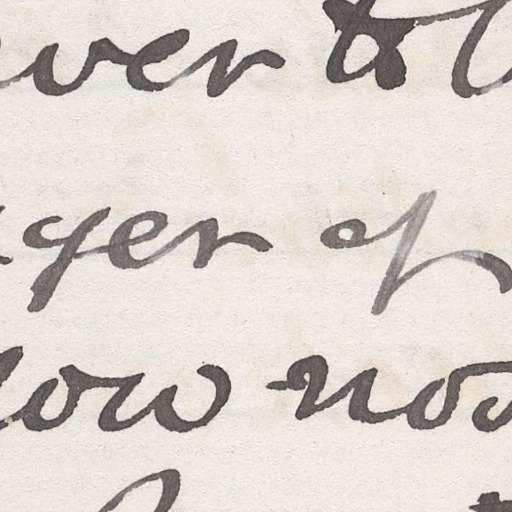 ver to
ger of
low no